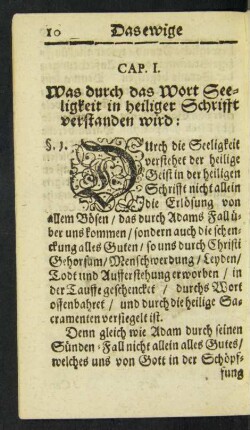 10 Das ewige
CAP. I.
Was durch das Wort See-
ligkeit in heiliger Schrifft
verstanden wird:
§. 1. DUrch die Seeligkeit
verstehet der heilige
Geist in der heiligen
Schrifft nicht allein
die Erlösung von
allem Bösen / das durch Adams Fall ü-
ber uns kommen / sondern auch die schen-
ckung alles Guten / so uns durch Christi
Gehorsam / Menschwerdung / Leyden /
Todt und Aufferstehung erworben / in
der Tauffe geschencket / durchs Wort
offenbahret / und durch die heilige Sa-
cramenten versiegelt ist.
Denn gleich wie Adam durch seinen
Sünden-Fall nicht allein alles Gutes /
welches uns von Gott in der Schöpf-
fung